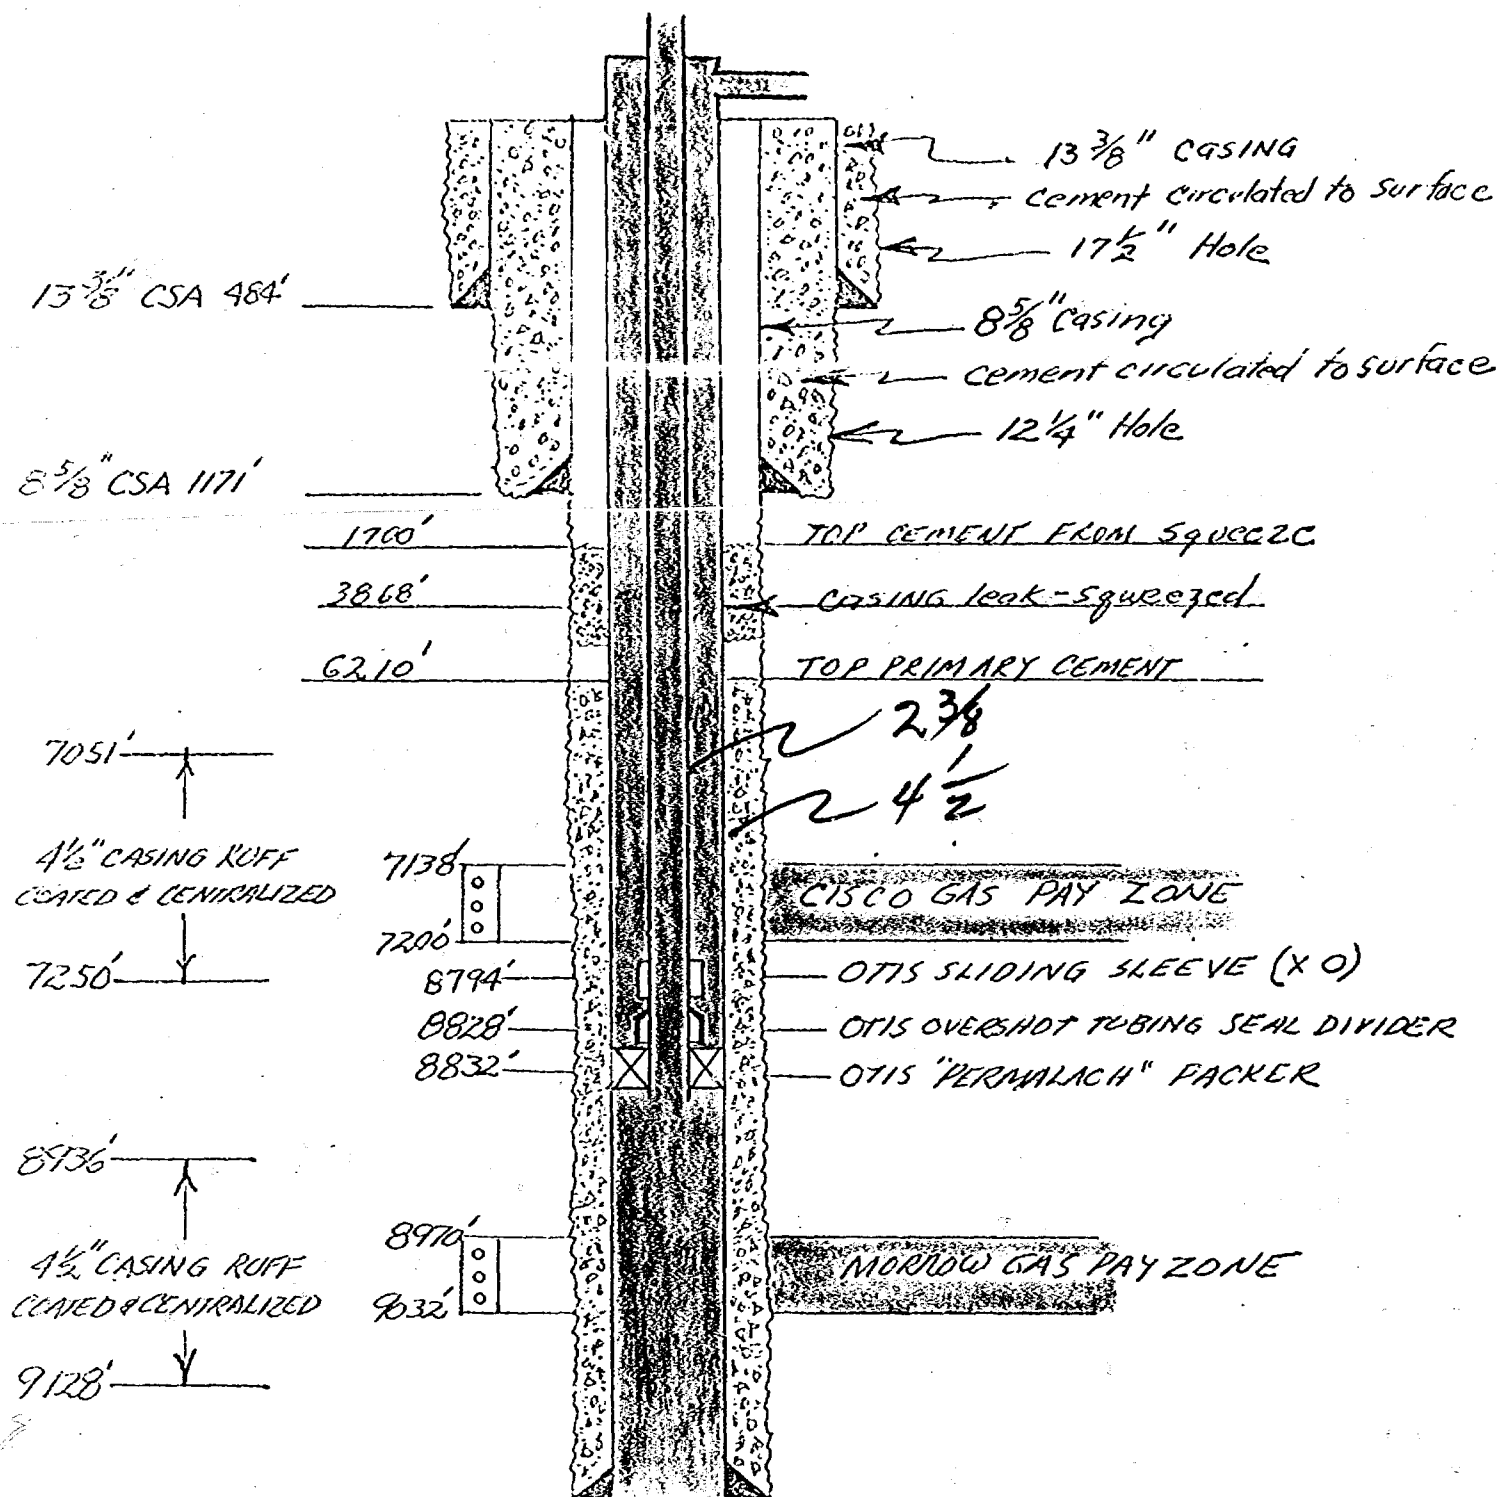 13 3/8" CASING
cement circulated to surface
17 1/2" Hole
13 3/8" CSA 484'
8 5/8" Casing
cement circulated to surface
12 1/4" Hole
8 5/8" CSA 1171'
1700' TOP CEMENT FROM SQUEEZE
3868' CASING leak-squeezed
6210' TOP PRIMARY CEMENT
2 3/8
7051'
4 1/2
4 1/2" CASING RUFF
COATED & CENTRALIZED
7138'
CISCO GAS PAY ZONE
7206'
7250'
8794' OTIS SLIDING SLEEVE (X O)
8828' OTIS OVERSHOT TUBING SEAL DIVIDER
8832' OTIS "PERMALACH" PACKER
8936'
8970'
4 1/2" CASING RUFF
COATED & CENTRALIZED
MORROW GAS PAY ZONE
9032'
9128'